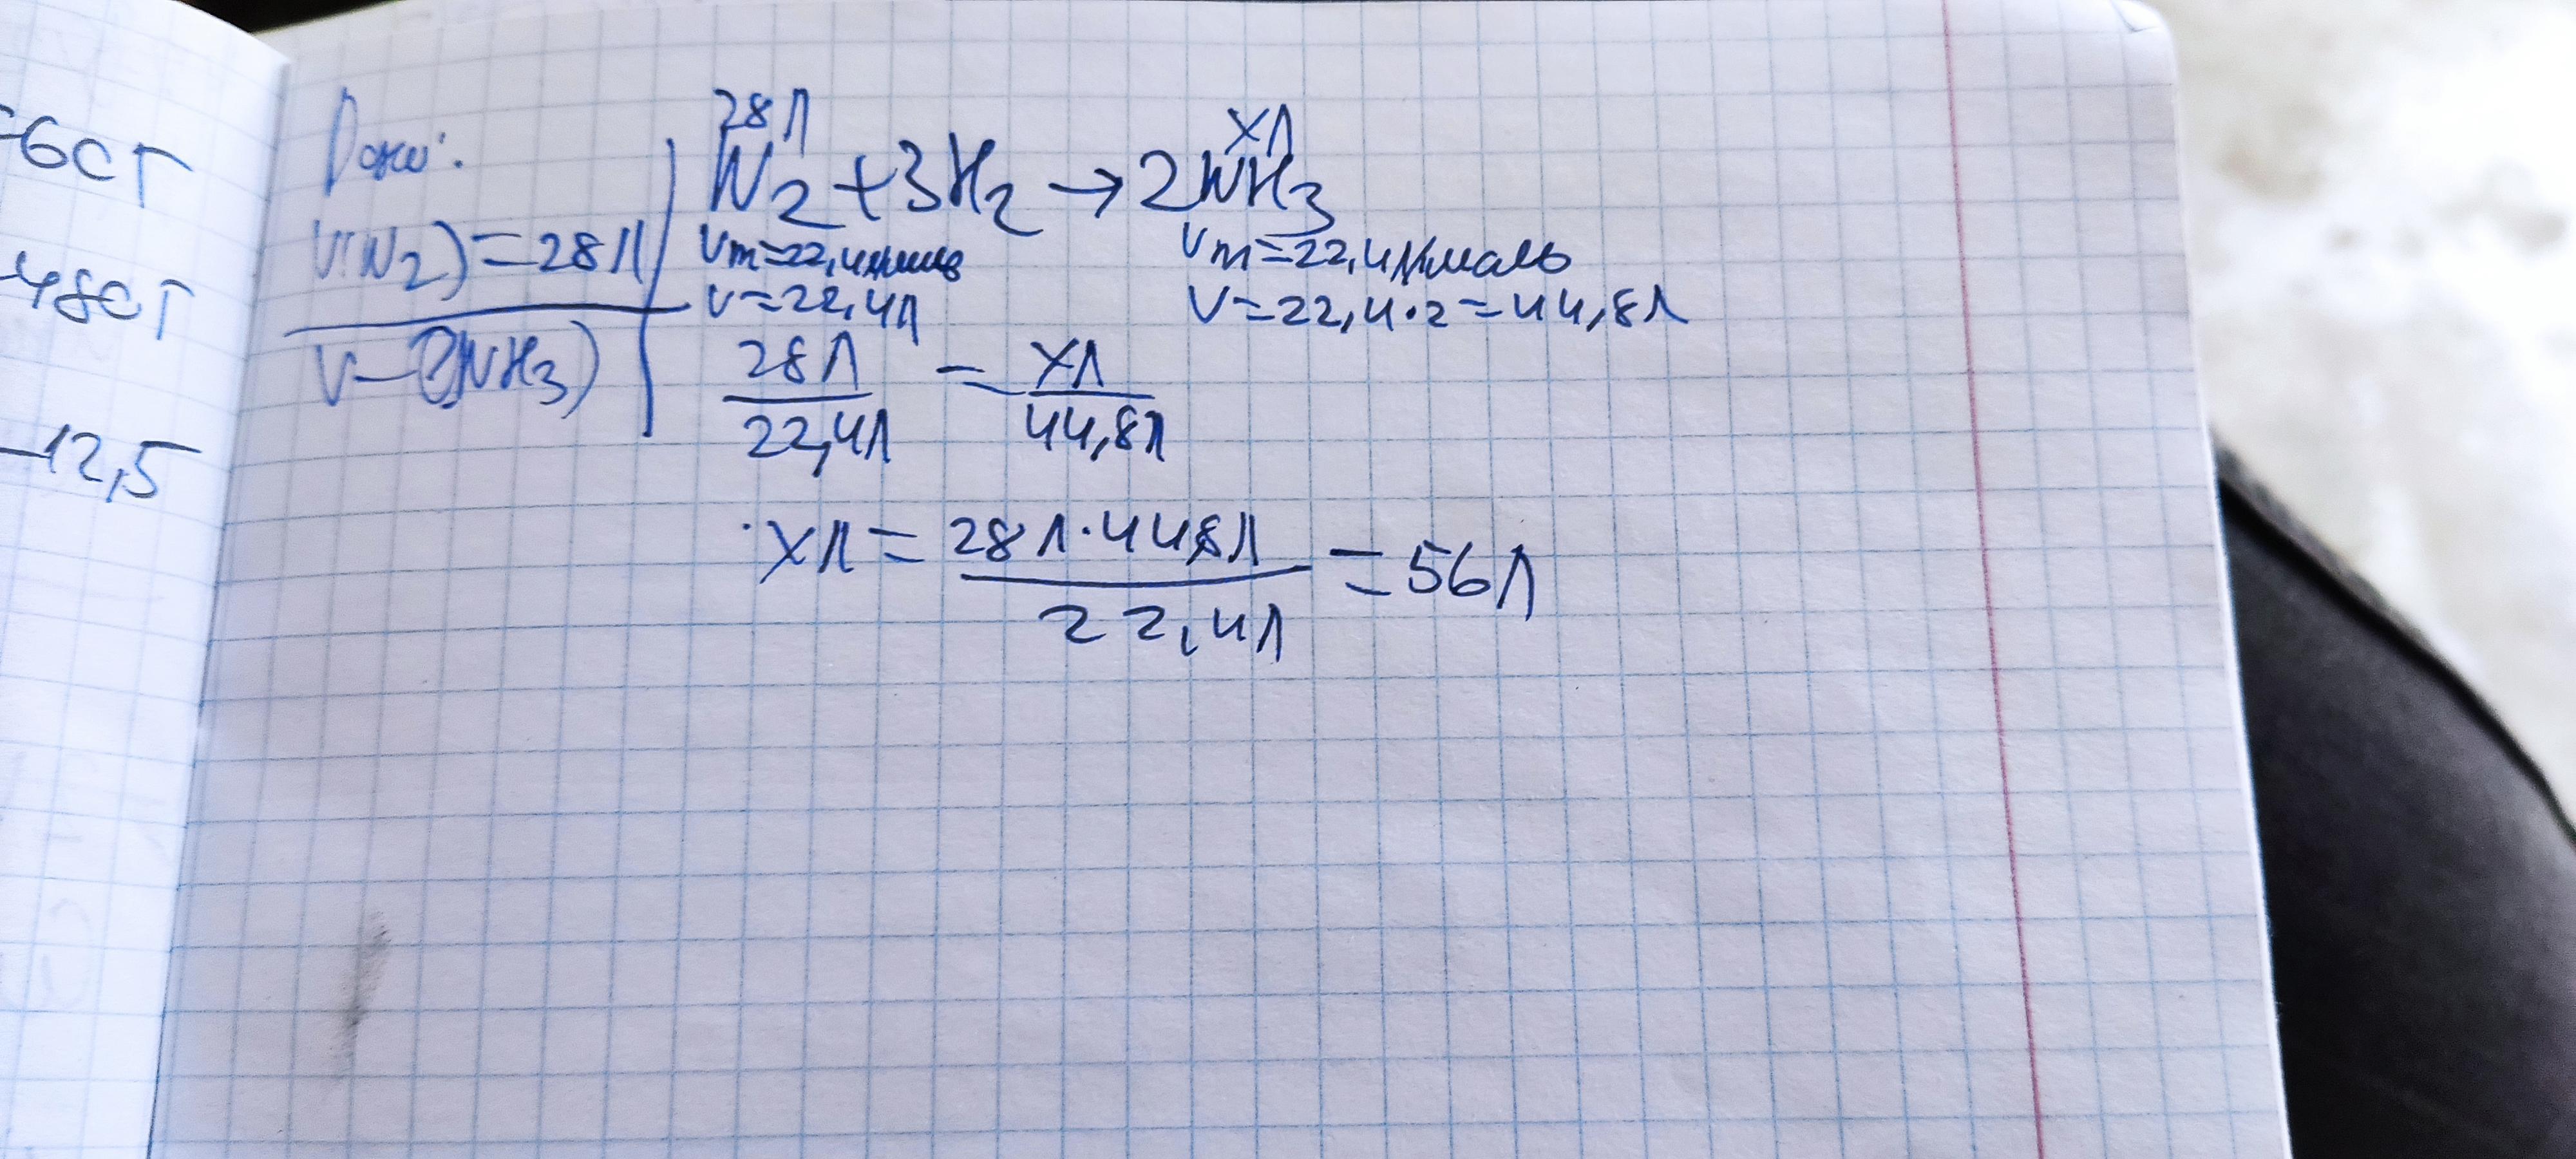 -60г
-480г
-12,5
Дано:
V(N2)=28л
V-?(NH3)
28л xл
N2+3H2→2NH3
Vm=22,4л/моль Vm=22,4л/моль
V=22,4л V=22,4·2=44,8л
28л/22,4л = xл/44,8л
xл = 28л·44,8л/22,4л = 56л